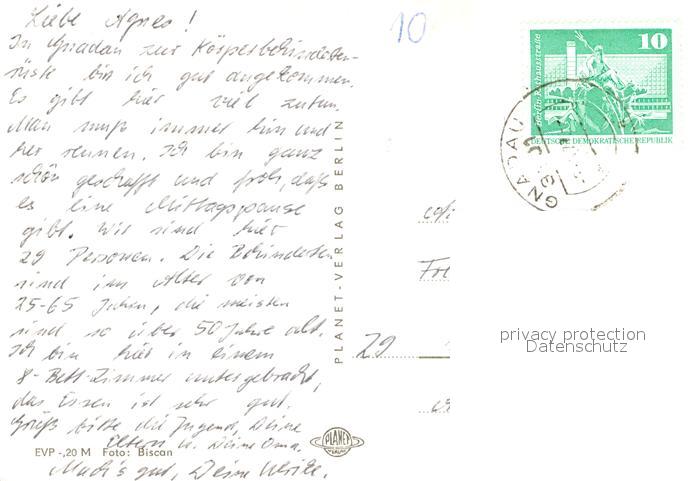 Liebe Agnes!
In Gnadau zur Körperbehinderten-
rüste bin ich gut angekommen.
Es gibt hier viel zutun.
Man muß immer hin und
her rennen. Ich bin ganz
schön geschafft und froh, daß
es eine Mittagspause
gibt. Wir sind hier
29 Personen. Die Behinderten
sind im Alter von
25-65 Jahren, die meisten
sind so über 50 Jahre alt.
Ich bin hier in einem
8-Bett-Zimmer untergebracht,
das Essen ist sehr gut.
Grüß bitte die Jugend, Deine
Eltern u. Deine Oma.
Mach's gut, Deine Ulrike.
EVP -,20 M Foto: Biscan
PLANET-VERLAG BERLIN
PLANET
VERLAG
10
10
Berlin-Rathausstraße
DEUTSCHE DEMOKRATISCHE REPUBLIK
GNADAU
29
privacy protection
Datenschutz